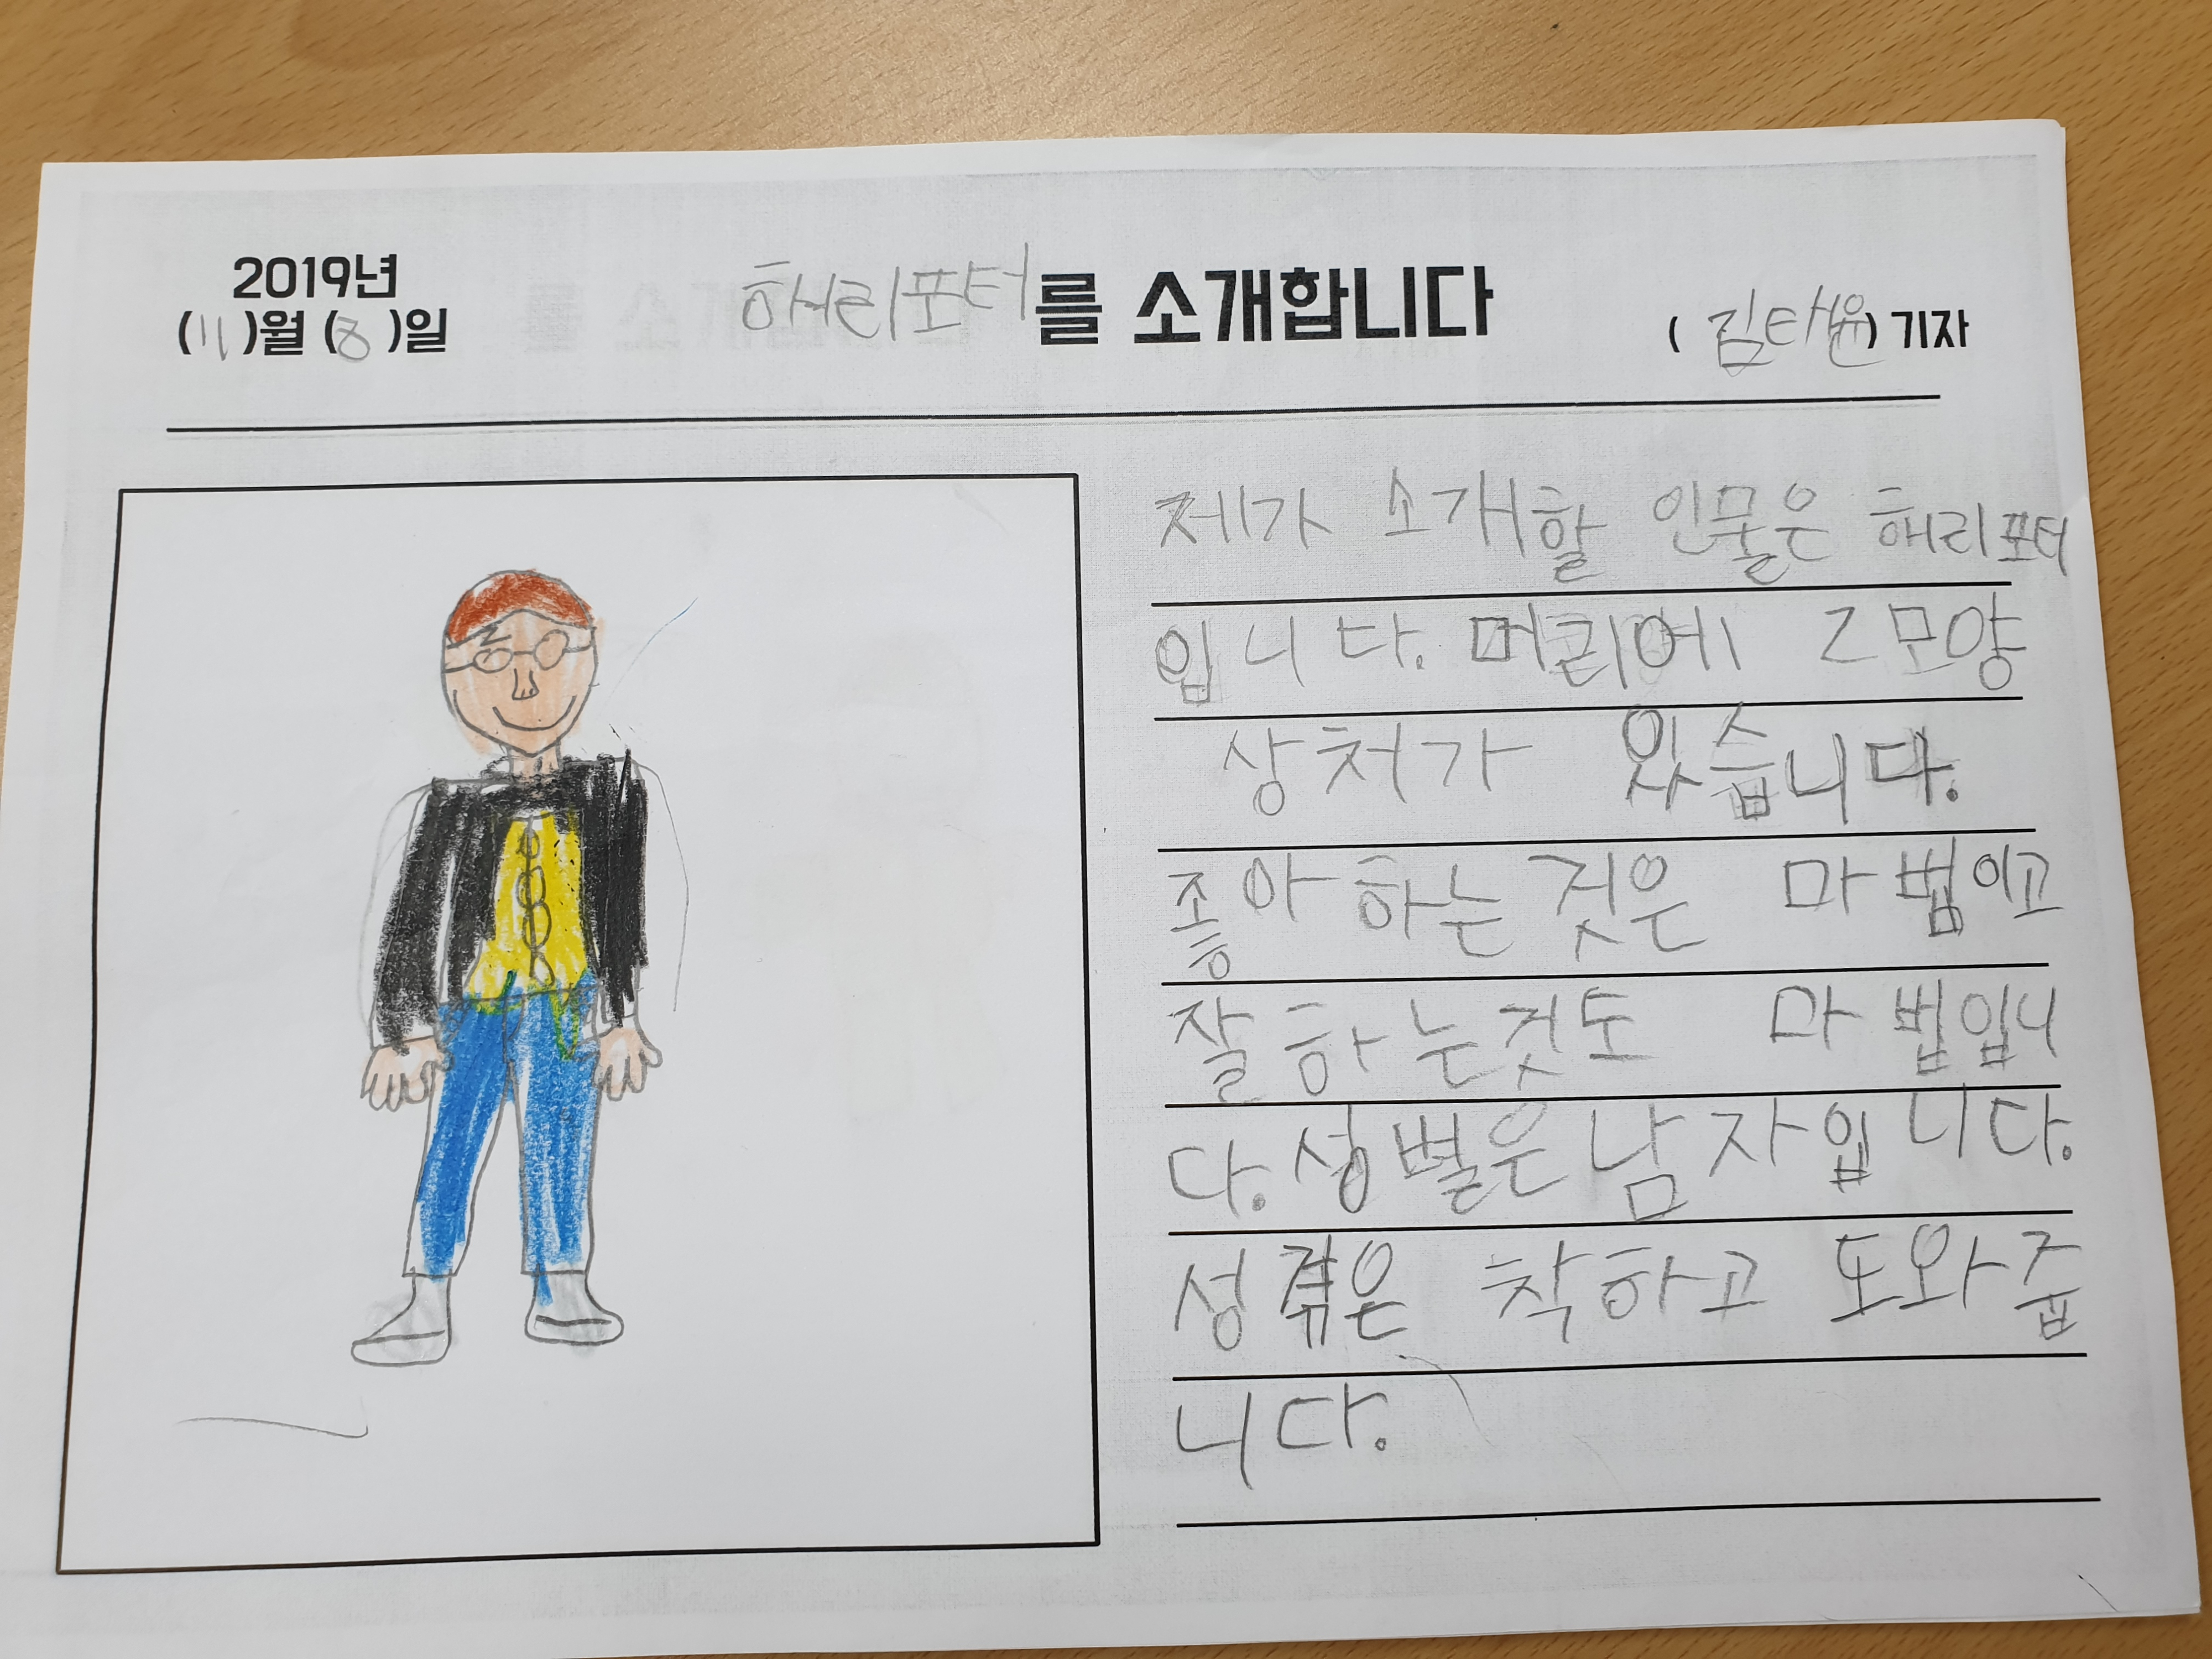 2019년
(11)월 (8)일
해리포터를 소개합니다
(김태윤) 기자
제가 소개할 인물은 해리포터
입니다. 머리에 Z 모양
상처가 있습니다.
좋아하는 것은 마법이고
잘하는것도 마법입니
다. 성별은 남자입니다.
성격은 착하고 도와줍
니다.